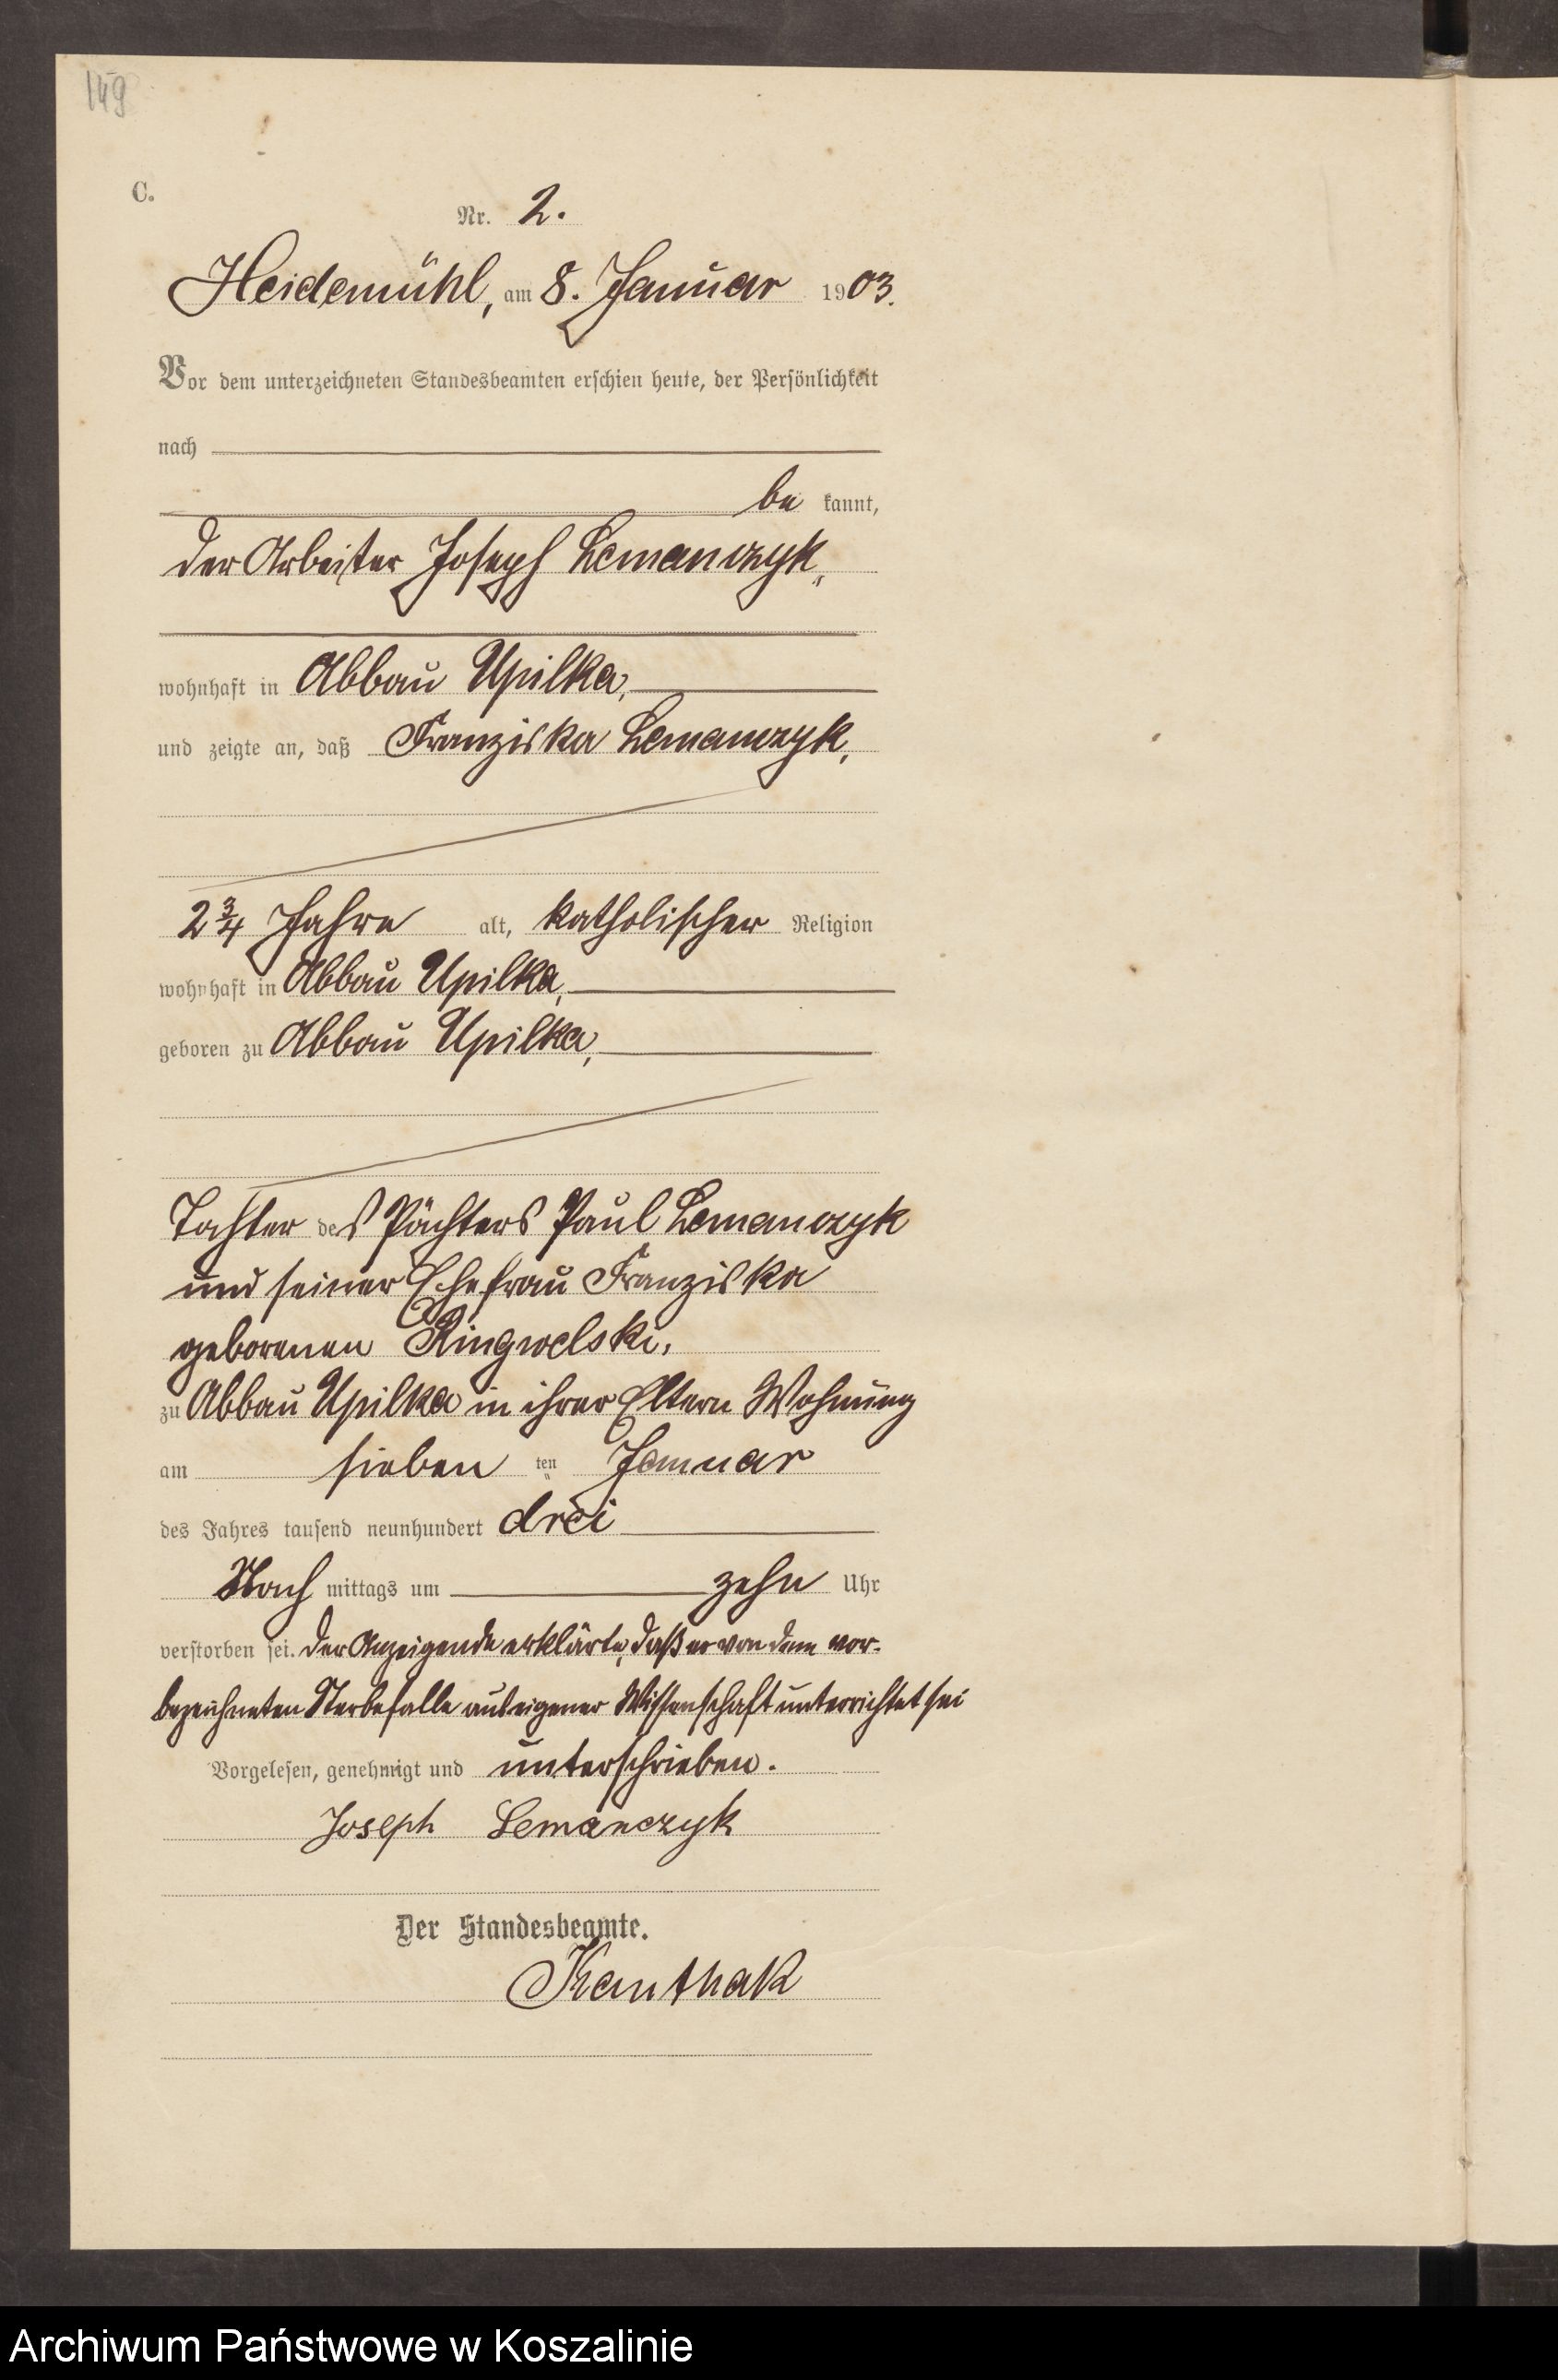 149
C.
Nr. 2.
Heidemühl, am 8. Januar 1903.
Vor dem unterzeichneten Standesbeamten erschien heute, der Persönlichkeit
nach
be kannt,
der Arbeiter Joseph Lemanczyk,
wohnhaft in Abbau Upilka,
und zeigte an, daß Franziska Lemanczyk,
2 3/4 Jahre alt, katholischer Religion
wohnhaft in Abbau Upilka,
geboren zu Abbau Upilka,
Tochter des Pächters Paul Lemanczyk
und seiner Ehefrau Franziska
geborenen Ringwelski,
zu Abbau Upilka in ihrer Eltern Wohnung
am sieben ten Januar
des Jahres tausend neunhundert drei
Nach mittags um zehn Uhr
verstorben sei. Der Anzeigende erklärte, daß er von dem vor-
bezeichneten Sterbefalle aus eigener Wissenschaft unterrichtet sei
Vorgelesen, genehmigt und unterschrieben.
Joseph Lemanczyk
Der Standesbeamte.
Kanthak
Archiwum Państwowe w Koszalinie